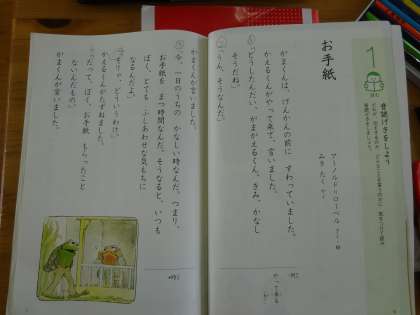 1
音読げきをしよう
お手紙
アーノルド＝ローベル
みき たく
がまくんは、げんかんの前に すわっていました。
かえるくんがやって来て、言いました。
「どうしたんだい、がまがえるくん。きみ、かなし
そうだね。」
「うん、そうなんだ。」
がまくんが言いました。
「今、一日のうちの かなしい時なんだ。つまり、
お手紙を まつ時間なんだ。そうなると、いつも
ぼく、とても ふしあわせな気もちに
なるんだよ。」
「そりゃ、どういうわけ。」
かえるくんがたずねました。
「だって、ぼく、お手紙 もらったこと
ないんだもの。」
がまくんが言いました。